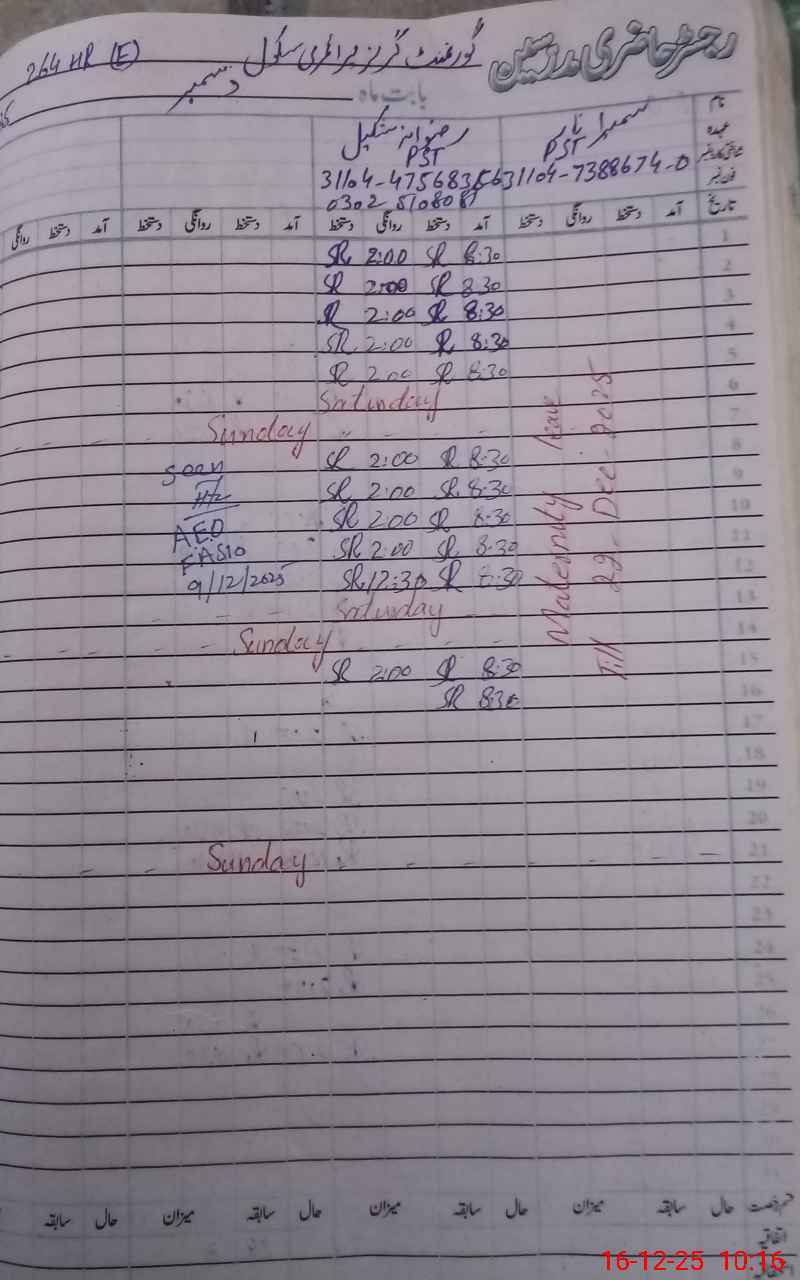 رجسٹر حاضری مدرسین گورنمنٹ گرلز پرائمری سکول 264 HR (E)
بابت ماہ دسمبر
نام سمیرا ناز رضوانہ
عہدہ PST PST
31104-7388674-0 31104-4756835-6
فون نمبر 0302 5108081
تاریخ آمد دستخط روانگی دستخط آمد دستخط روانگی دستخط آمد دستخط روانگی دستخط آمد دستخط روانگی
1 8:30 SR 2:00 SR
2 8:30 SR 2:00 SR
3 8:30 SR 2:00 SR
4 8:30 SR 2:00 SR
5 8:30 SR 2:00 SR
6 Saturday
7 Sunday
8 8:30 SR 2:00 SR seen
9 8:30 SR 2:00 SR
10 8:30 SR 2:00 SR AEO
11 8:30 SR 2:00 SR
12 8:30 SR 12:30 SR 9/12/2025
13 Saturday
14 Sunday
15 8:30 SR 2:00 SR
16 8:30 SR
Maternity leave
Till 22-Dec-2025
17
18
19
20
21 Sunday
22
23
24
25
26
27
حال سابقہ میزان حال سابقہ میزان حال سابقہ میزان حال سابقہ
اتفاقیہ
16-12-25 10:16